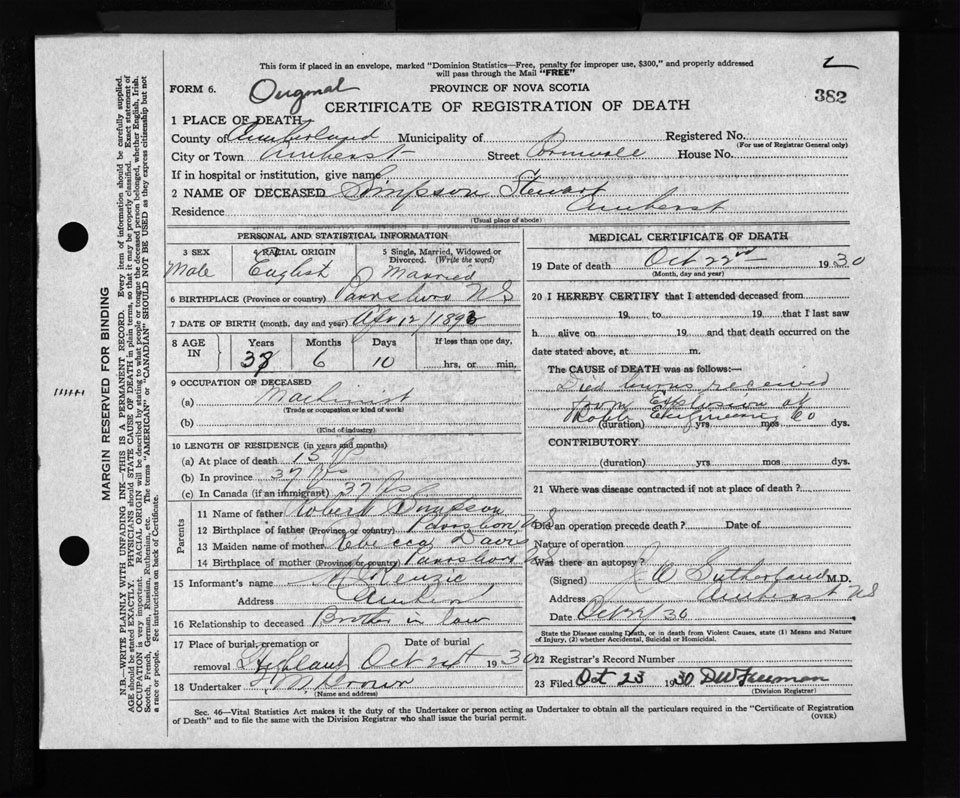 This form if placed in an envelope, marked "Dominion Statistics—Free, penalty for improper use, $300," and properly addressed
will pass through the Mail "FREE"
2
FORM 6. Original PROVINCE OF NOVA SCOTIA
382
CERTIFICATE OF REGISTRATION OF DEATH
1 PLACE OF DEATH
County of Cumberland Municipality of Registered No.
(For use of Registrar General only)
City or Town Amherst Street Cornwall House No.
If in hospital or institution, give name
2 NAME OF DECEASED Simpson Stewart
Residence Amherst
(Usual place of abode)
PERSONAL AND STATISTICAL INFORMATION
3 SEX 4 RACIAL ORIGIN 5 Single, Married, Widowed or
Divorced. (Write the word)
Male English Married
6 BIRTHPLACE (Province or country) Parrsboro N S
7 DATE OF BIRTH (month, day and year) Apr 12/1893
8 AGE IN Years Months Days If less than one day,
6 10 hrs, or min.
9 OCCUPATION OF DECEASED
(a) Machinist
(Trade or occupation or kind of work)
(b)
(Kind of industry)
10 LENGTH OF RESIDENCE (in years and months)
(a) At place of death 15 yrs
(b) In province 37 yrs
(c) In Canada (if an immigrant) 37 yrs
Parents
11 Name of father Robert Simpson
12 Birthplace of father (Province or country) Parrsboro N S
13 Maiden name of mother Rebecca Davis
14 Birthplace of mother (Province or country) Parrsboro N S
15 Informant's name McKenzie
Address Amherst
16 Relationship to deceased Brother in law
17 Place of burial, cremation or Date of burial
removal Highland Oct 24th 1930
18 Undertaker Brown
(Name and address)
MEDICAL CERTIFICATE OF DEATH
19 Date of death Oct 22nd 1930
(Month, day and year)
20 I HEREBY CERTIFY that I attended deceased from
19 to 19 that I last saw
h alive on 19 and that death occurred on the
date stated above, at m.
The CAUSE OF DEATH was as follows:—
Died burns received
from Explosion at
Robb Engineering Co
(duration) yrs mos dys.
CONTRIBUTORY
(duration) yrs mos dys.
21 Where was disease contracted if not at place of death?
Did an operation precede death? Date of
Nature of operation
Was there an autopsy?
(Signed) Sutherland M.D.
Address Amherst NS
Date Oct 30
State the Disease causing Death, or in death from Violent Causes, state (1) Means and Nature
of Injury, (2) whether Accidental, Suicidal or Homicidal.
22 Registrar's Record Number
23 Filed Oct 23 1930 DW Freeman
(Division Registrar)
Sec. 46—Vital Statistics Act makes it the duty of the Undertaker or person acting as Undertaker to obtain all the particulars required in the "Certificate of Registration
of Death" and to file the same with the Division Registrar who shall issue the burial permit.
(OVER)
MARGIN RESERVED FOR BINDING
N.B.—WRITE PLAINLY WITH UNFADING INK—THIS IS A PERMANENT RECORD. Every item of information should be carefully supplied.
AGE should be stated EXACTLY. PHYSICIANS should STATE CAUSE OF DEATH in plain terms, so that it may be properly classified. Exact statement of
OCCUPATION is very important. RACIAL ORIGIN will be described by stating to what people or tongue the deceased person belonged, whether English, Irish,
Scotch, French, German, Russian, Ruthenian, etc. The terms "AMERICAN" or "CANADIAN" SHOULD NOT BE USED as they express citizenship but not
a race or people. See instructions on back of Certificate.